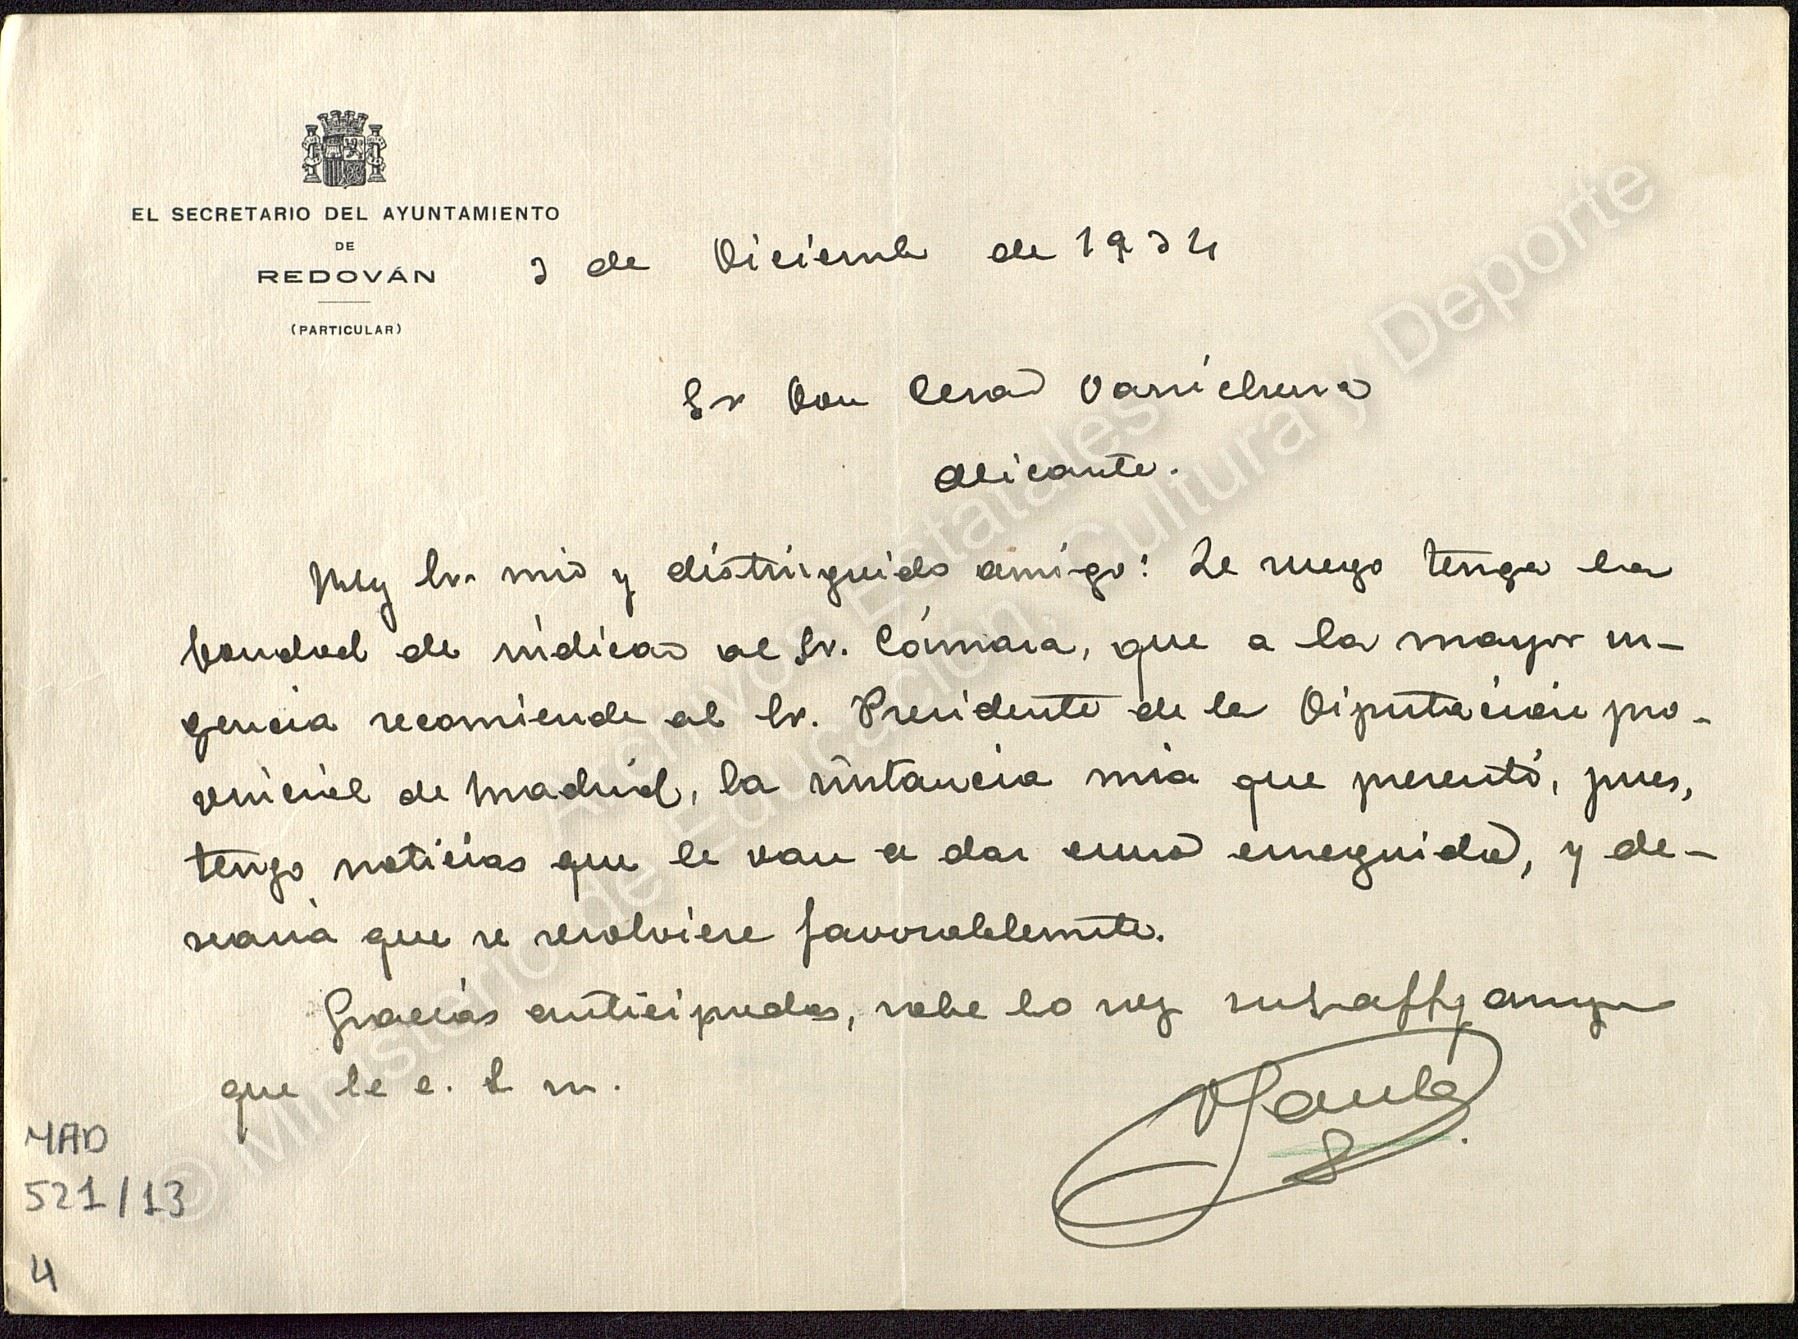 EL SECRETARIO DEL AYUNTAMIENTO
DE
REDOVÁN
(PARTICULAR)
3 de Diciembre de 1934
Sr Don Cesar
Alicante.
Muy Sr. mio y distinguido amigo: Le ruego tenga la
bondad de indicar al Sr. Cámara, que a la mayor ur-
gencia recomiende al Sr. Presidente de la Diputación pro-
vincial de Madrid, la instancia mia que presentó, pues,
tengo noticias que le van a dar curso enseguida, y de-
searia que se resolviere favorablemente.
Gracias anticipadas, sabe lo soy su affº amigo
que le e. s. m.
MAD
521/13
4
© Ministerio de Educación, Cultura y Deporte
Archivos Estatales